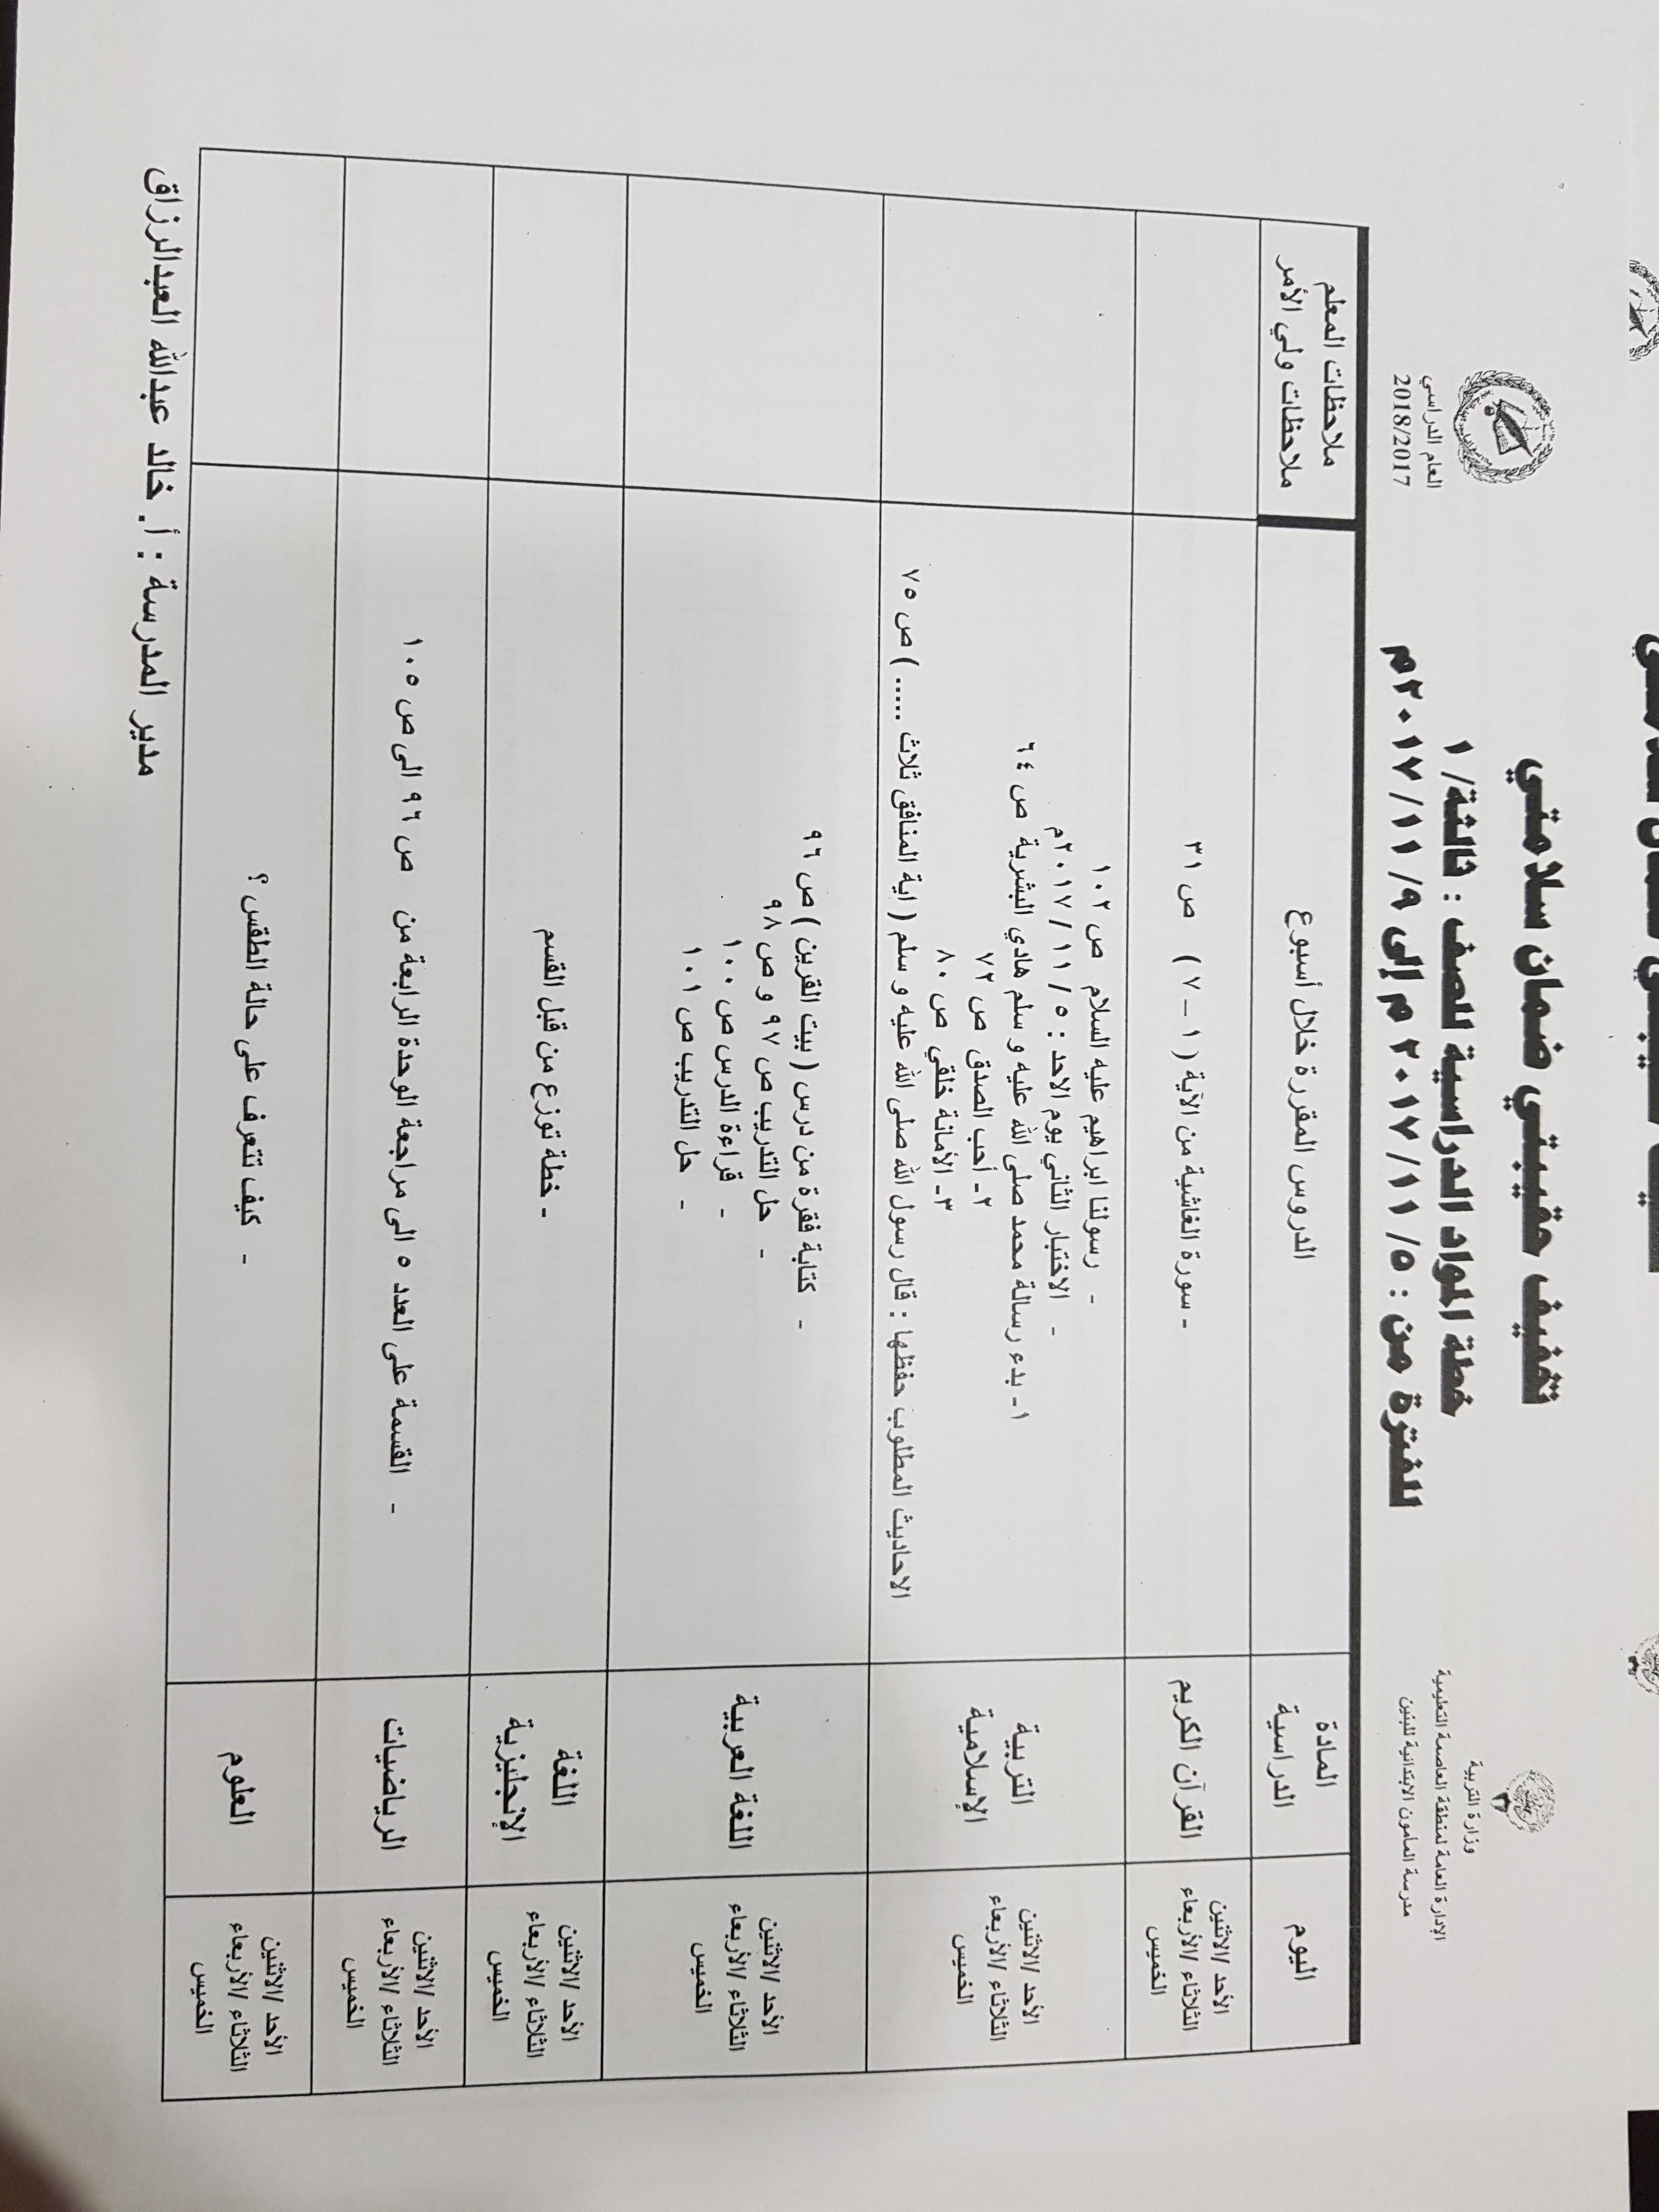 وزارة التربية
الإدارة العامة لمنطقة العاصمة التعليمية
مدرسة المامون الابتدائية للبنين
تخفيف حقيبتي ضمان سلامتي
خطة المواد الدراسية للصف : ثالثة/ ١
للفترة من : ٥/ ١١/ ٢٠١٧ م إلى ٩/ ١١/ ٢٠١٧م
العام الدراسي
2018/2017
اليوم
المادة
الدراسية
الدروس المقررة خلال أسبوع
ملاحظات المعلم
ملاحظات ولي الأمر
الأحد /الاثنين
الثلاثاء /الأربعاء
الخميس
القرآن الكريم
- سورة الغاشية من الآية ( ١ – ٧ ) ص ٣١
الأحد /الاثنين
الثلاثاء /الأربعاء
الخميس
التربية
الإسلامية
- رسولنا ابراهيم عليه السلام ص ١٠٢
- الاختبار الثاني يوم الاحد : ٥ / ١١ / ٢٠١٧م
١- بدء رسالة محمد صلى الله عليه و سلم هادي البشرية ص ٦٤
٢- أحب الصدق ص ٧٢
٣- الأمانة خلقي ص ٨٠
الاحاديث المطلوب حفظها : قال رسول الله صلى الله عليه و سلم ( اية المنافق ثلاث ..... ) ص ٧٥
الأحد /الاثنين
الثلاثاء /الأربعاء
الخميس
اللغة العربية
- كتابة فقرة من درس ( بيت القرين ) ص ٩٦
- حل التدريب ص ٩٧ و ص ٩٨
- قراءة الدرس ص ١٠٠
- حل التدريب ص ١٠١
الأحد /الاثنين
الثلاثاء /الأربعاء
الخميس
اللغة
الإنجليزية
- خطة توزع من قبل القسم
الأحد /الاثنين
الثلاثاء /الأربعاء
الخميس
الرياضيات
- القسمة على العدد ٥ الى مراجعة الوحدة الرابعة من ص ٩٦ الى ص ١٠٥
الأحد /الاثنين
الثلاثاء /الأربعاء
الخميس
العلوم
- كيف تتعرف على حالة الطقس ؟
مدير المدرسة : أ. خالد عبدالله العبدالرزاق